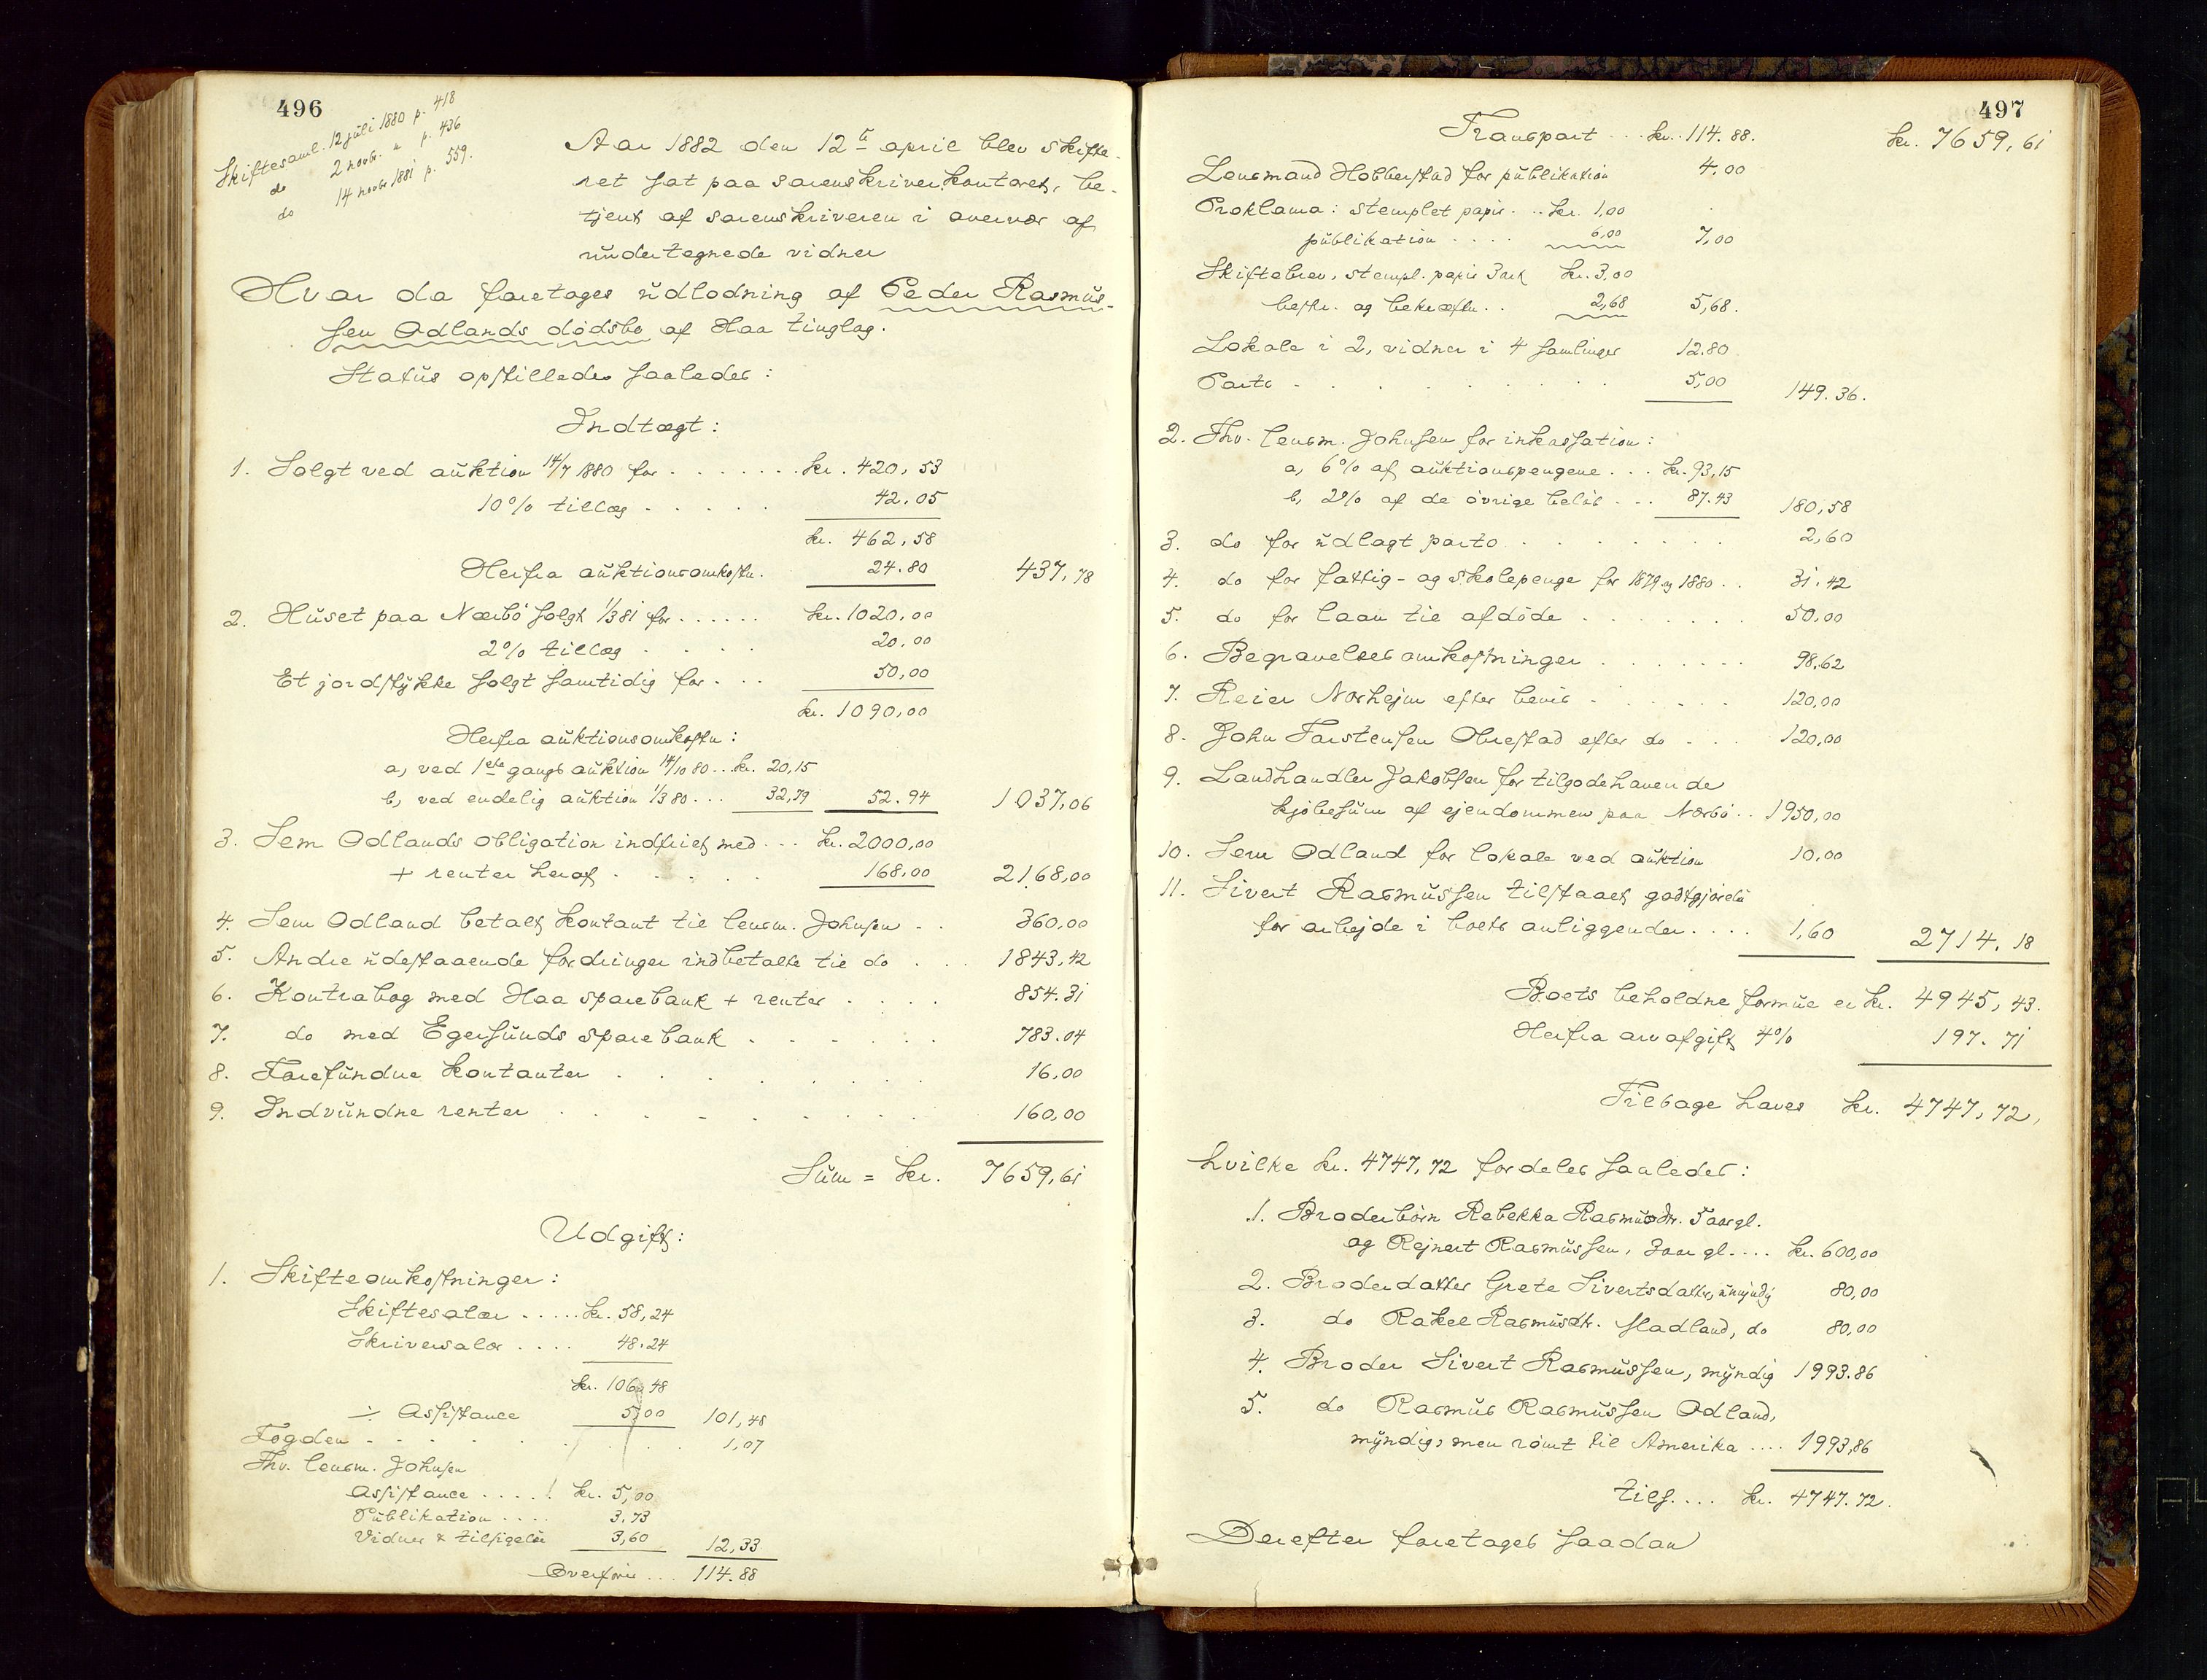 496
Skiftesaml. 12 juli 1880 p. 418
do 2 novbr. " p. 436
do 14 novbr 1881 p. 559.
Aar 1882 den 12te april blev skifte-
ret sat paa sorenskriverkontoret, be-
tjent af sorenskriveren i overvær af
undertegnede vidner
Hvor da foretages udlodning af Peder Rasmus-
sen Odlands dødsbo af Haa tinglag.
Status opstilledes saaledes:
Indtægt:
1. Solgt ved auktion 14/7 1880 for . . . . . . . kr. 420,53
10% tillæg . . . . . 42.05
kr. 462,58
Herfra auktionsomkostn. 24.80 437,78
2. Huset paa Nærbø solgt 1/3 81 for . . . . . . kr. 1020,00
2% tillæg . . . . 20.00
Et jordstykke solgt samtidig for . . . 50,00
kr. 1090,00
Herfra auktionsomkostn:
a, ved 1ste gangs auktion 14/10 80 . . kr. 20,15
b, ved endelig auktion 1/3 80 . . . 32,79 52.94 1037,06
3. Sem Odlands obligation indfriet med . . . kr. 2000,00
+ renter heraf . . . . . 168,00 2168,00
4. Sem Odland betalt kontant til lensm. Johnsen . . 360,00
5. Andre udestaaende fordringer indbetalte til do . . . 1843,42
6. Kontrabog med Haa sparebank + renter . . . . 854.31
7. do med Egersunds sparebank . . . . . . 783.04
8. Forefundne kontanter . . . . . . . 16,00
9. Indvundne renter . . . . . . . 160,00
Sum = kr. 7659,61
Udgift:
1. Skifteomkostninger:
Skiftesalær . . . . . kr. 58,24
Skriversalær . . . . 48.24
kr. 106,48
÷ Assistance 5,00 101,48
Fogden . . . . . . . . 1,07
Fhv. lensm. Johnsen
Assistance . . . . . kr. 5,00
Publikation . . . . 3.73
Vidner & tilsigelse 3,60 12,33
Overføres . . . 114.88
497
Transport . . . kr. 114.88. kr. 7659,61
Lensmand Hobberstad for publikation 4.00
Proklama: stemplet papir . . . kr. 1,00
publikation . . . . 6,00 7,00
Skiftebrev, stempl. papir 3 ark kr. 3,00
beskr. og bekræftn. . . 2,68 5,68.
Lokale i 2, vidner i 4 samlinger 12.80
Porto . . . . . . . . . 5,00 149.36.
2. Fhv. lensm. Johnsen for inkassation:
a, 6% af auktionspengene . . . kr. 93,15
b, 2% af de øvrige beløb . . . 87.43 180,58
3. do for udlagt porto . . . . . . . . 2,60
4. do for fattig- og skolepenge for 1879 og 1880 . . 31.42
5. do for laan til afdøde . . . . . . . 50,00
6. Begravelsesomkostninger . . . . . . 98.62
7. Reier Norhejm efter bevis . . . . . . 120,00
8. John Torstensen Obrestad efter do . . . 120,00
9. Landhandler Jakobsen for tilgodehavende
kjøbesum af ejendommen paa Nærbø . . 1950,00
10. Sem Odland for lokale ved auktion 10,00
11. Sivert Rasmussen tilstaaet godtgjørelse
for arbejde i boets anliggender . . . . 1,60 2714.18
Boets beholdne formue er kr. 4945,43.
Herfra arvafgift 4% 197.71
Tilbage haves kr. 4747,72,
hvilke kr. 4747,72 fordeles saaledes:
1. Broderbørn Rebekka Rasmusdtr. 5 aar gl.
og Rejnert Rasmussen, 3 aar gl. . . . kr. 600,00
2. Broderdatter Grete Sivertsdatter, umyndig 80,00
3. do Rakel Rasmusdtr. Hadland, do 80,00
4. Broder Sivert Rasmussen, myndig 1993.86
5. do Rasmus Rasmussen Odland,
myndig, men rømt til Amerika . . . . 1993,86
tils. . . . kr. 4747.72.
Derefter foretages saadan